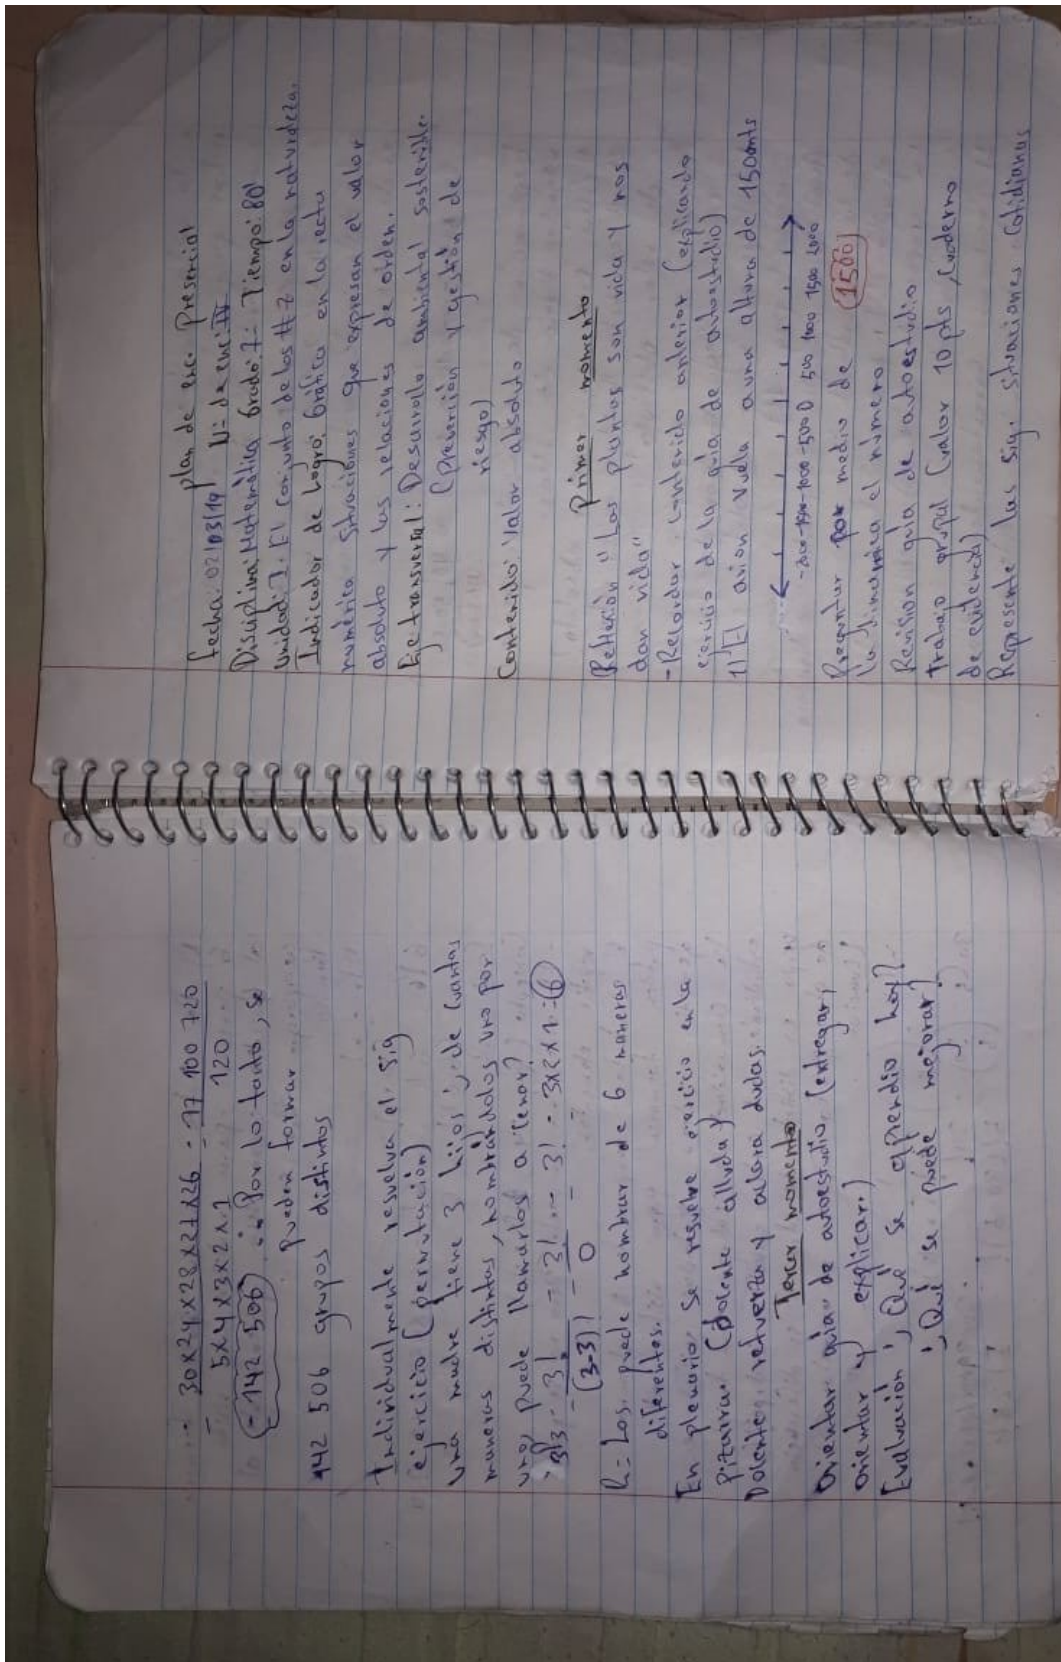 30x29x28x27x26 = 17 100 720
5x4x3x2x1 120
= 142 506 ∴ Por lo tanto, se
pueden formar
142 506 grupos distintos
Individualmente resuelva el sig
ejercicio (permutación)
Una madre tiene 3 hijos ¿de cuantas
maneras distintas, nombrándolos uno por
uno, puede llamarlos a cenar?
3P3 = 3! = 3! = 3! = 3x2x1 = 6
(3-3)! 0
R= Los puede nombrar de 6 maneras
diferentes.
En plenario se resuelve ejercicio en la
pizarra (docente alluda)
Docente refuerza y aclara dudas.
Tercer momento
Orientar guia de autoestudio (entregar,
orientar y explicar.)
Evaluación ¿Qué se aprendio hoy?
¿Qué se puede mejorar?
plan de enc. presencial
fecha: 02/03/19 N= de enc: IV
Disciplina: Matemática Grado: 7= Tiempo: 80'
Unidad: I. El conjunto de los # Z en la naturaleza.
Indicador de logro: Gráfica en la recta
numérica situaciones que expresan el valor
absoluto y las relaciones de orden.
Eje transversal: Desarrollo ambiental sostenible.
(prevención y gestión de
riesgo)
Contenido: Valor absoluto
primer momento
Reflexión "Las plantas son vida y nos
dan vida"
-Recordar contenido anterior (explicando
ejercicio de la guia de autoestudio)
1) El avion vuela a una altura de 1500mts
-2000 -1500 -1000 -500 0 500 1000 1500 2000
Preguntar por medio de 1500
la dinamica el numero,
Revision guia de autoestudio
trabajo grupal (valor 10 pts, cuaderno
de evidencia)
Represente las sig. situaciones cotidianas